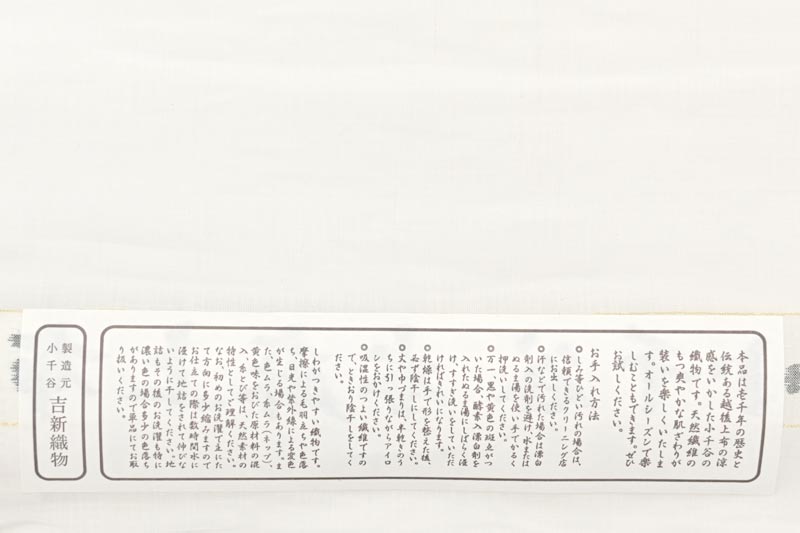 本品は壱千年の歴史と
伝統ある越後上布の涼
感をいかした小千谷の
織物です。天然繊維の
もつ爽やかな肌ざわりが
装いを楽しくいたしま
す。オールシーズンで楽
しむこともできます。ぜひ
お試しください。
お手入れ方法
◎しみ等ひどい汚れの場合は、
信頼できるクリーニング店
にお出しください。
◎汗などで汚れた場合は漂白
剤入の洗剤を避け、水または
ぬるま湯を使い手でかるく
押洗いしてください。
◎万一、黒や黄色の斑点がつ
いた場合、酵素入漂白剤を
入れたぬるま湯にしばらく浸
け、すすぎ洗いをしていただ
ければきれいになります。
◎乾燥は手で形を整えた後、
必ず陰干しにしてください。
◎丈やゆづまりは、半乾きのう
ちに引っ張りながらアイロ
ンをおかけください。
◎吸湿性のつよい繊維ですの
で、ときおり陰干しをしてく
ださい。
しわがつきやすい織物です。
摩擦による毛羽立ちや色落
ち、日光や紫外線による変色
が生じる場合もあります。ま
た、色ムラ・糸ムラ(ネップ)、
黄色味をおびた原材料の混
入、糸とび等は、天然素材の
特性としてご理解ください。
なお、初めのお洗濯で主にた
て方向に多少縮みますので
お仕立ての際は数時間水に
浸けて地詰をされて伸びな
いように干してください。地
詰もその後のお洗濯も特に
濃い色の場合多少の色落ち
がありますので単品にてお取
り扱いください。
製造元
小千谷
吉新織物